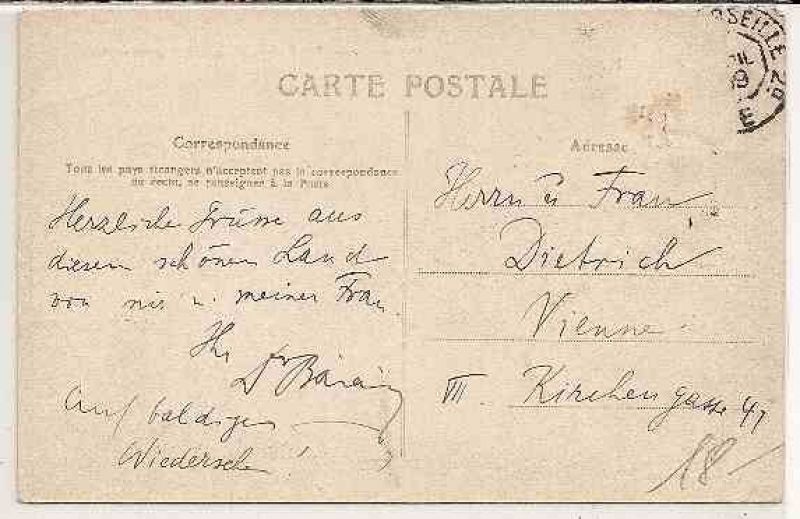 CARTE POSTALE
Correspondance
Tous les pays étrangers n'acceptent pas la correspondance
au recto, se renseigner à la Poste
Herzliche Grüsse aus
diesem schönen Land
von mir u. meiner Frau.
Ihr
Dr Bárány
Auf baldiges
Wiedersehn!
Adresse
Herrn u Frau
Dietrich
Vienne
VII. Kirchengasse 41
18-
MARSEILLE